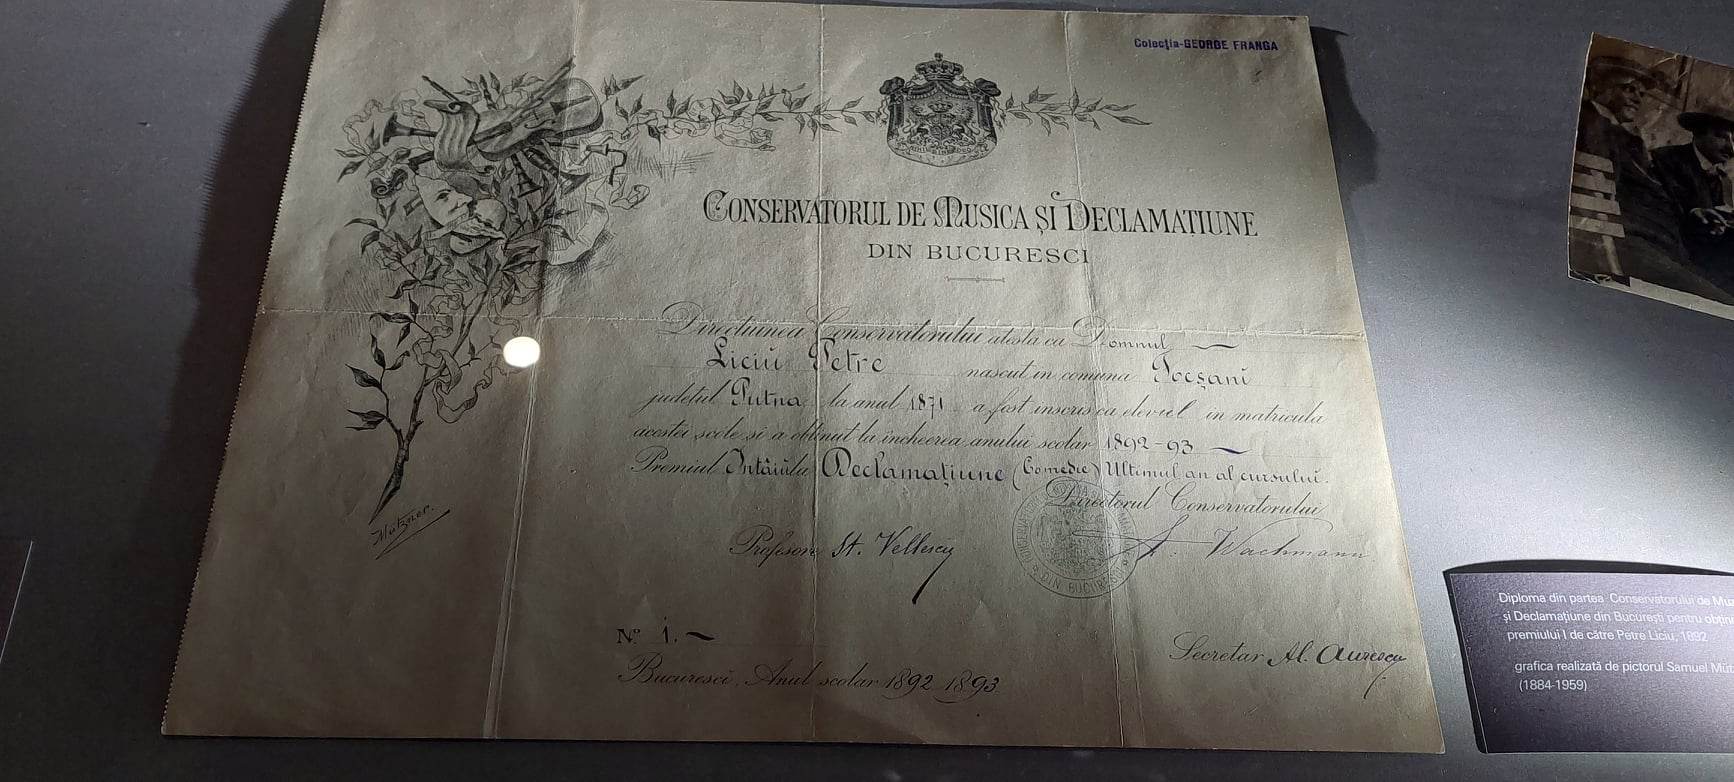 Colecția-GEORGE FRANGA
CONSERVATORUL DE MUSICA ȘI DECLAMAȚIUNE
DIN BUCURESCI
Direcțiunea Conservatorului atesta ca Domnul
Liciu Petre nascut in comuna Focșani
județul Putna la anul 1871 a fost inscris ca elevul in matricula
acestei scóle si a obținut la incheerea anului scolar 1892-93
Premiul Intâiŭ la Declamațiune (Comedie) Ultimul an al cursului.
Directorul Conservatorului
Profesore St. Vellescu
Wachmann
DIN BUCURESCI
Mützner.
No. 1.
Secretar Al. Aurescu
Bucuresci, Anul scolar 1892 1893
Diploma din partea Conservatorului de
și Declamațiune din București pentru
premiului I de către Petre Liciu, 1892
grafica realizată de pictorul Samuel
(1884-1959)